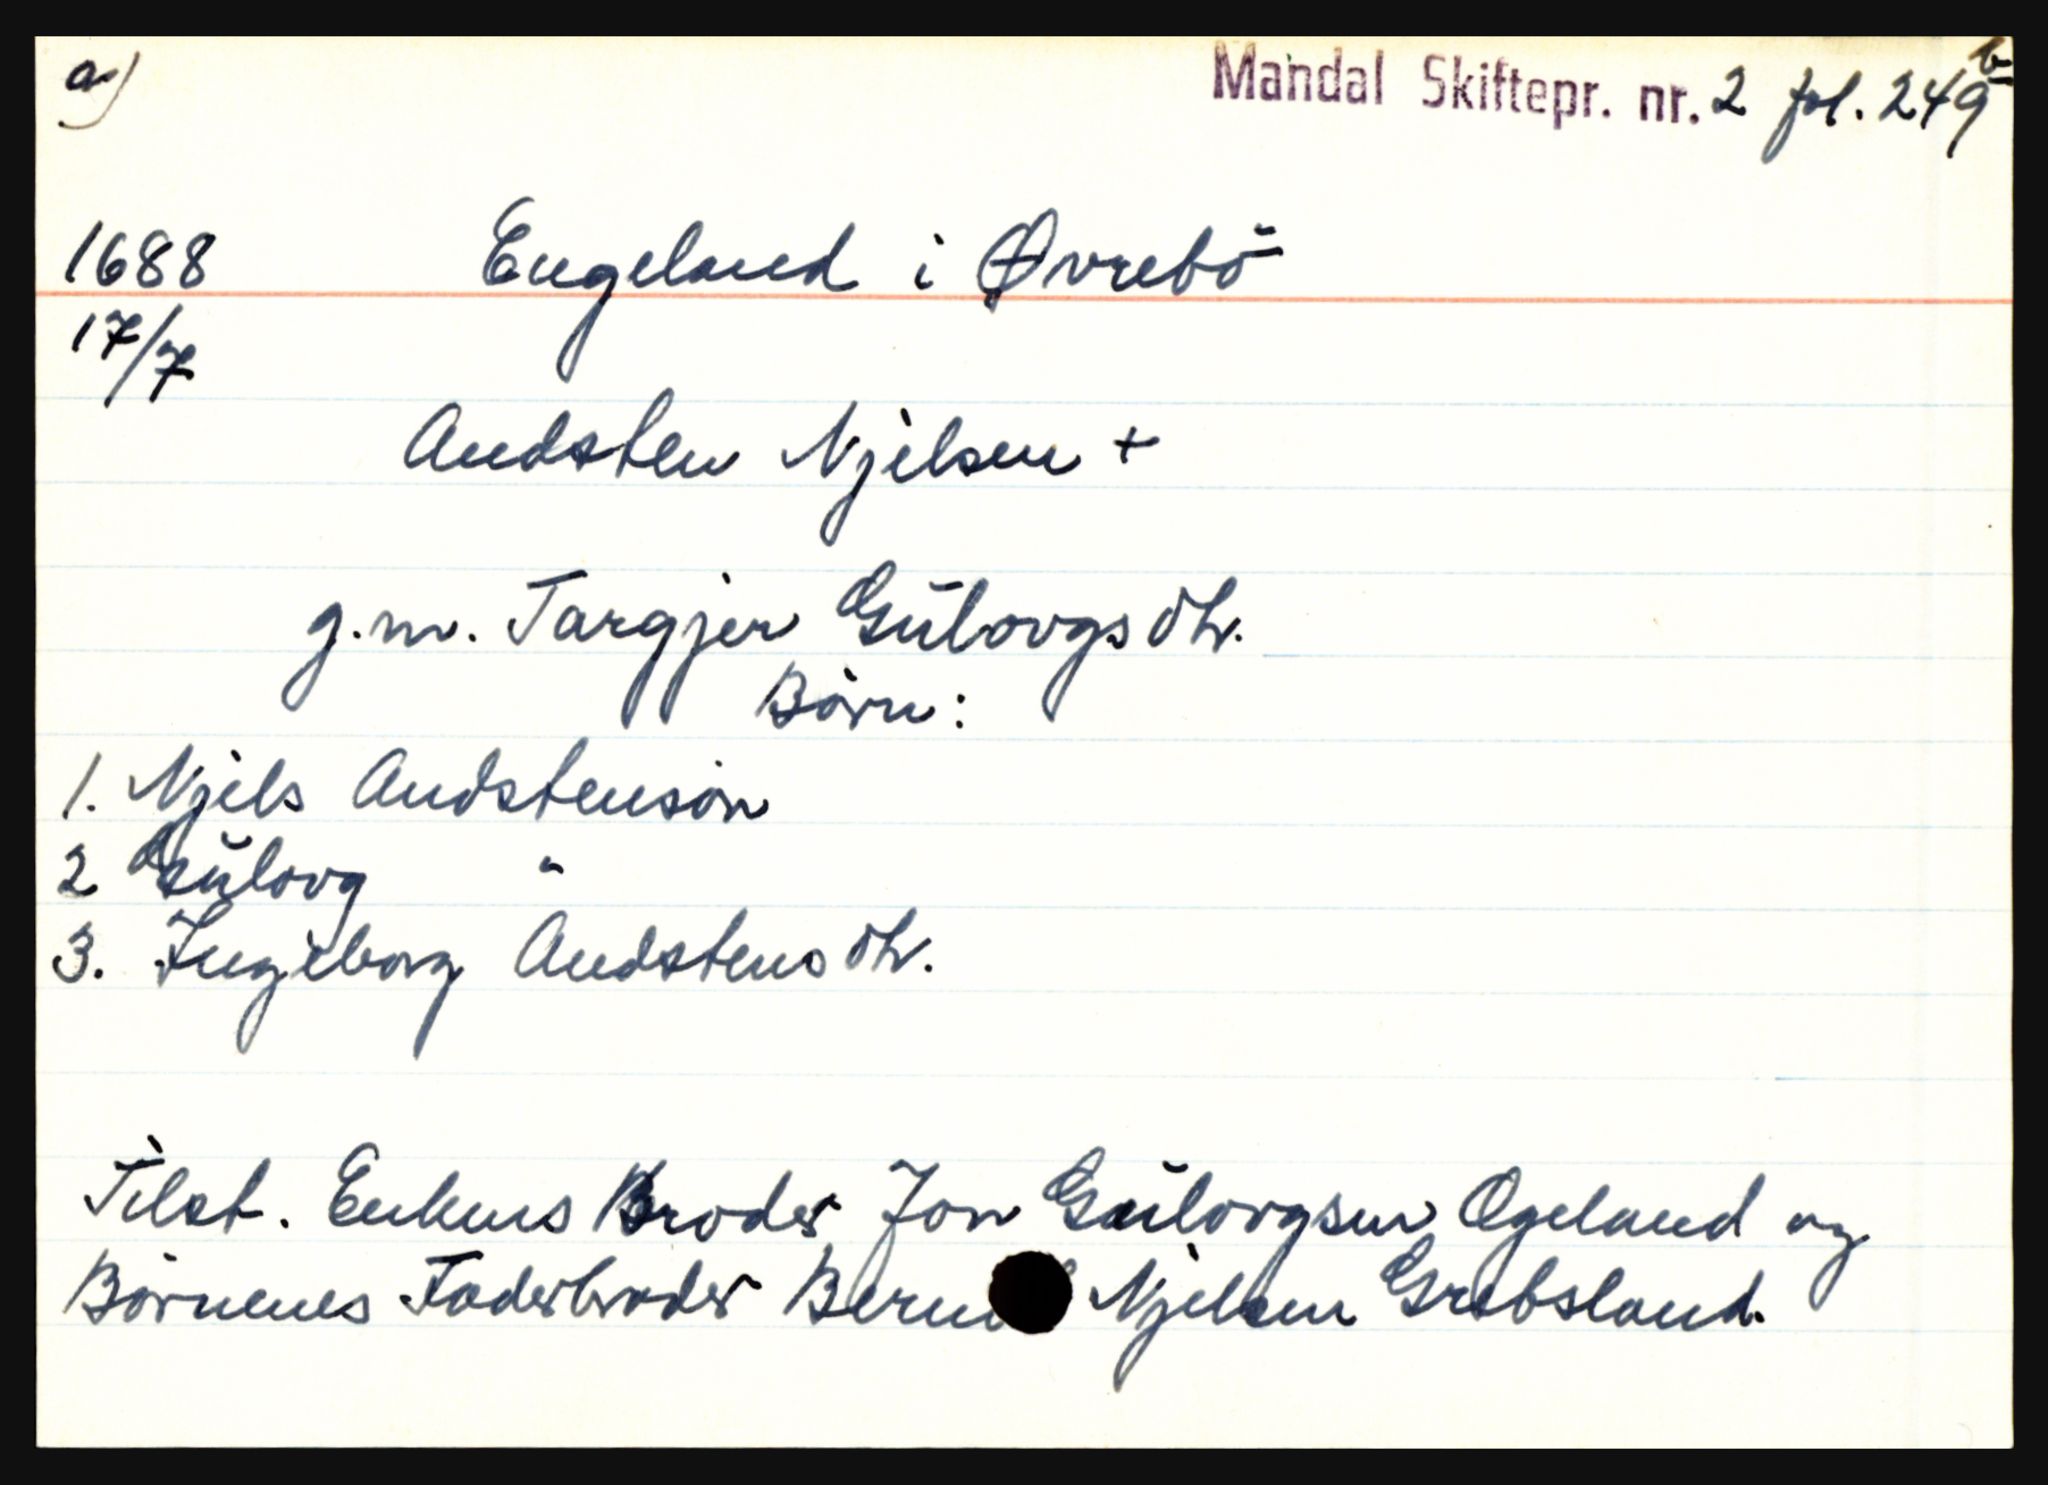 a)
Mandal Skiftepr. nr. 2 fol. 249b
1688 Engeland i Øvrebö
17/7
Audsten Njelsen +
g.m. Targjer Gülovgsdtr.
Børn:
1. Njels Audstensøn
2 Gülovg "
3. Ingeborg Audstensdtr.
Tilst. Enkens Broder Jon Gülovgsen Øgeland og
Børnenes Faderbroder Njelsen Grebsland.